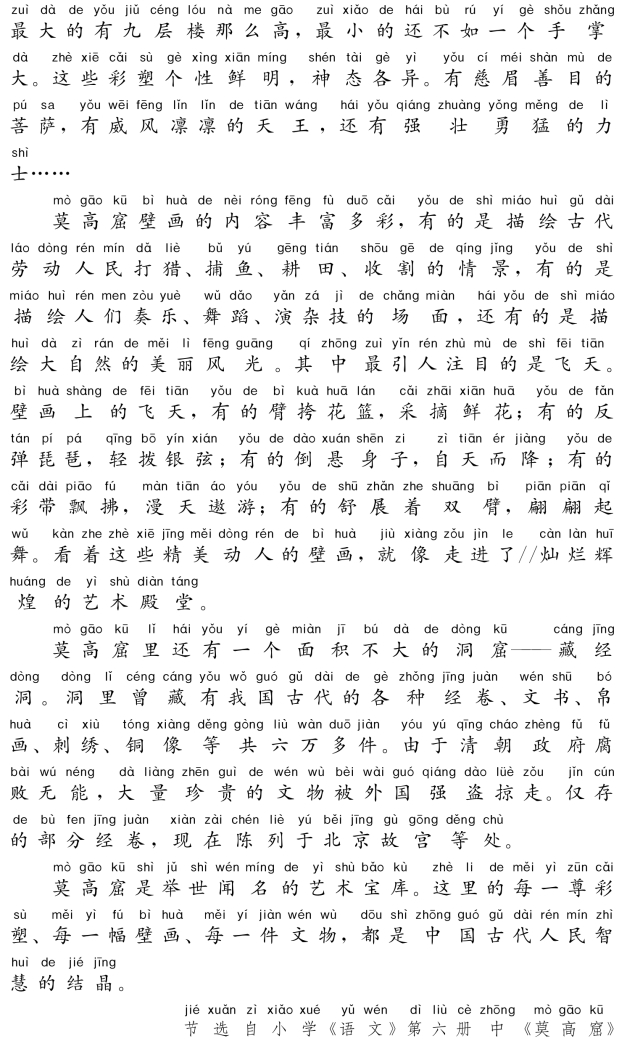 zuì dà de yǒu jiǔ céng lóu nà me gāo zuì xiǎo de hái bù rú yí gè shǒu zhǎng
最大的有九层楼那么高，最小的还不如一个手掌
dà zhè xiē cǎi sù gè xìng xiān míng shén tài gè yì yǒu cí méi shàn mù de
大。这些彩塑个性鲜明，神态各异。有慈眉善目的
pú sa yǒu wēi fēng lǐn lǐn de tiān wáng hái yǒu qiáng zhuàng yǒng měng de lì
菩萨，有威风凛凛的天王，还有强壮勇猛的力
shì
士……
mò gāo kū bì huà de nèi róng fēng fù duō cǎi yǒu de shì miáo huì gǔ dài
莫高窟壁画的内容丰富多彩，有的是描绘古代
láo dòng rén mín dǎ liè bǔ yú gēng tián shōu gē de qíng jǐng yǒu de shì
劳动人民打猎、捕鱼、耕田、收割的情景，有的是
miáo huì rén men zòu yuè wǔ dǎo yǎn zá jì de chǎng miàn hái yǒu de shì miáo
描绘人们奏乐、舞蹈、演杂技的场面，还有的是描
huì dà zì rán de měi lì fēng guāng qí zhōng zuì yǐn rén zhù mù de shì fēi tiān
绘大自然的美丽风光。其中最引人注目的是飞天。
bì huà shàng de fēi tiān yǒu de bì kuà huā lán cǎi zhāi xiān huā yǒu de fǎn
壁画上的飞天，有的臂挎花篮，采摘鲜花；有的反
tán pí pá qīng bō yín xián yǒu de dào xuán shēn zi zì tiān ér jiàng yǒu de
弹琵琶，轻拨银弦；有的倒悬身子，自天而降；有的
cǎi dài piāo fú màn tiān áo yóu yǒu de shū zhǎn zhe shuāng bì piān piān qǐ
彩带飘拂，漫天遨游；有的舒展着双臂，翩翩起
wǔ kàn zhe zhè xiē jīng měi dòng rén de bì huà jiù xiàng zǒu jìn le càn làn huī
舞。看着这些精美动人的壁画，就像走进了//灿烂辉
huáng de yì shù diàn táng
煌的艺术殿堂。
mò gāo kū lǐ hái yǒu yí gè miàn jī bú dà de dòng kū cáng jīng
莫高窟里还有一个面积不大的洞窟——藏经
dòng dòng lǐ céng cáng yǒu wǒ guó gǔ dài de gè zhǒng jīng juàn wén shū bó
洞。洞里曾藏有我国古代的各种经卷、文书、帛
huà cì xiù tóng xiàng děng gòng liù wàn duō jiàn yóu yú qīng cháo zhèng fǔ fǔ
画、刺绣、铜像等共六万多件。由于清朝政府腐
bài wú néng dà liàng zhēn guì de wén wù bèi wài guó qiáng dào lüè zǒu jǐn cún
败无能，大量珍贵的文物被外国强盗掠走。仅存
de bù fen jīng juàn xiàn zài chén liè yú běi jīng gù gōng děng chù
的部分经卷，现在陈列于北京故宫等处。
mò gāo kū shì jǔ shì wén míng de yì shù bǎo kù zhè li de měi yì zūn cǎi
莫高窟是举世闻名的艺术宝库。这里的每一尊彩
sù měi yì fú bì huà měi yí jiàn wén wù dōu shì zhōng guó gǔ dài rén mín zhì
塑、每一幅壁画、每一件文物，都是中国古代人民智
huì de jié jīng
慧的结晶。
jié xuǎn zì xiǎo xué yǔ wén dì liù cè zhōng mò gāo kū
节选自小学《语文》第六册中《莫高窟》